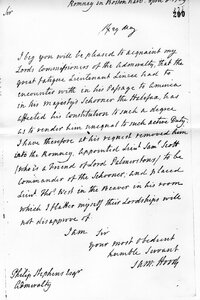 Romney in Boston Harbour April
Sir
I beg you will be pleased to acquaint my
Lords Commissioners of the Admiralty, that the
great fatigue Lieutenant Linzee had to
encounter with in his Passage to America
in his Majesty's Schooner the Halifax, has
affected his constitution to such a degree
as to render him unequal to such active Duty.
I have therefore at his request removed him
into the Romney, appointed Lieut. Saml. Scott
(who is a Friend of Lord Palmerston's) to be
Commander of the Schooner, and placed
Lieut. Thos. West in the Beaver in his room
which I flatter myself their Lordships will
not disapprove of.
I am Sir
Your most Obedient
humble Servant
Sam Hood
Philip Stephens Esqr
Admiralty